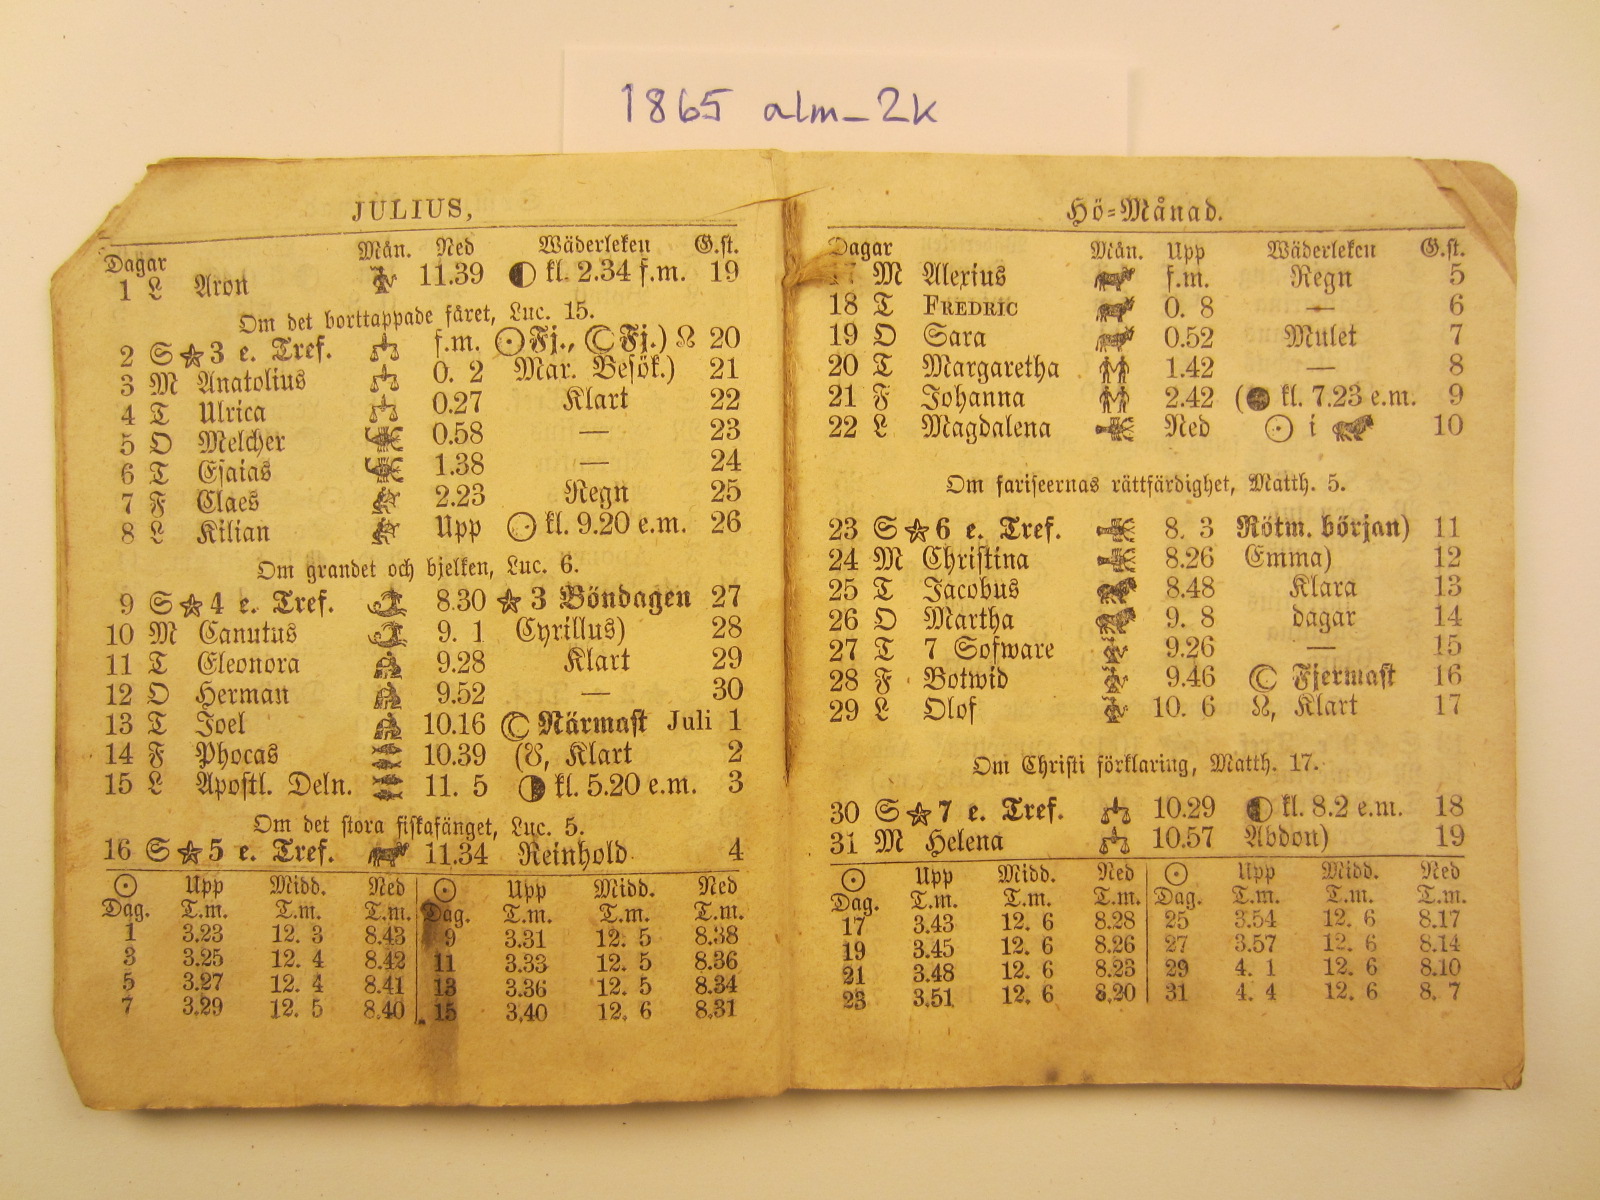 1865 alm_2k
JULIUS,
Dagar Mån. Ned Wäderleken G.st.
1 L Aron 11.39 kl. 2.34 f.m. 19
Om det borttappade fåret, Luc. 15.
2 S ★ 3 e. Tref. f.m. ☉ Fj., ☾ Fj.) ☊ 20
3 M Anatolius 0. 2 Mar. Besök.) 21
4 T Ulrica 0.27 Klart 22
5 O Melcher 0.58 — 23
6 T Esaias 1.38 — 24
7 F Claes 2.23 Regn 25
8 L Kilian Upp kl. 9.20 e.m. 26
Om grandet och bjelken, Luc. 6.
9 S ★ 4 e. Tref. 8.30 ★ 3 Böndagen 27
10 M Canutus 9. 1 Cyrillus) 28
11 T Eleonora 9.28 Klart 29
12 O Herman 9.52 — 30
13 T Joel 10.16 ☾ Närmast Juli 1
14 F Phocas 10.39 (☋, Klart 2
15 L Apostl. Deln. 11. 5 kl. 5.20 e.m. 3
Om det stora fiskafänget, Luc. 5.
16 S ★ 5 e. Tref. 11.34 Reinhold 4
☉ Upp Midd. Ned ☉ Upp Midd. Ned
Dag. T.m. T.m. T.m. Dag. T.m. T.m. T.m.
1 3.23 12. 3 8.43 9 3.31 12. 5 8.38
3 3.25 12. 4 8.42 11 3.33 12. 5 8.36
5 3.27 12. 4 8.41 13 3.36 12. 5 8.34
7 3.29 12. 5 8.40 15 3.40 12. 6 8.31
Hö-Månad.
Dagar Mån. Upp Wäderleken G.st.
17 M Alexius f.m. Regn 5
18 T FREDRIC 0. 8 — 6
19 O Sara 0.52 Mulet 7
20 T Margaretha 1.42 — 8
21 F Johanna 2.42 (● kl. 7.23 e.m. 9
22 L Magdalena Ned ☉ i 10
Om fariseernas rättfärdighet, Matth. 5.
23 S ★ 6 e. Tref. 8. 3 Rötm. början) 11
24 M Christina 8.26 Emma) 12
25 T Jacobus 8.48 Klara 13
26 O Martha 9. 8 dagar 14
27 T 7 Sofware 9.26 — 15
28 F Botwid 9.46 ☾ Fjermast 16
29 L Olof 10. 6 ☊, Klart 17
Om Christi förklaring, Matth. 17.
30 S ★ 7 e. Tref. 10.29 kl. 8.2 e.m. 18
31 M Helena 10.57 Abdon) 19
☉ Upp Midd. Ned ☉ Upp Midd. Ned
Dag. T.m. T.m. T.m. Dag. T.m. T.m. T.m.
17 3.43 12. 6 8.28 25 3.54 12. 6 8.17
19 3.45 12. 6 8.26 27 3.57 12. 6 8.14
21 3.48 12. 6 8.23 29 4. 1 12. 6 8.10
23 3.51 12. 6 8.20 31 4. 4 12. 6 8. 7